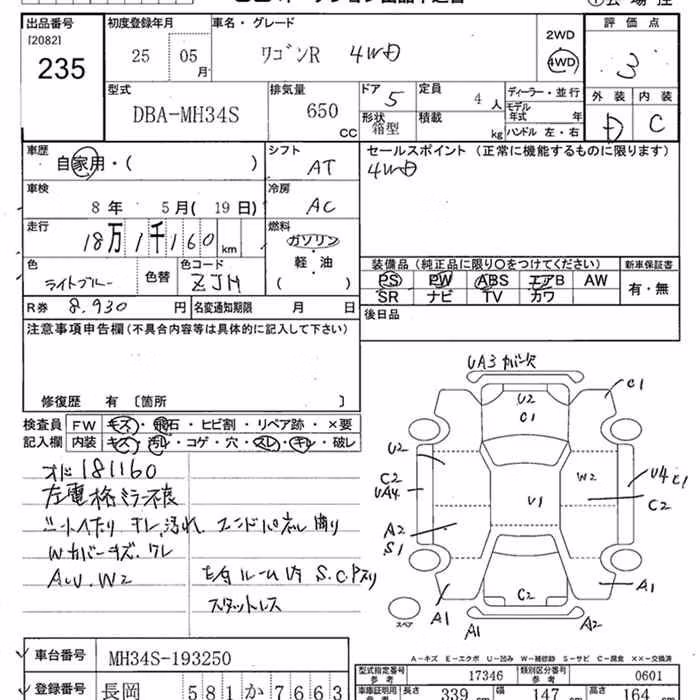 出品番号 初度登録年月 車名・グレード 2WD 評価点
[2082] 235 25 05月 ワゴンR 4WD 4WD 3
型式 排気量 ドア 定員 ディーラー・並行 外装 内装
DBA-MH34S 650 CC 5 4人 モデル年式 年 D C
形状 箱型 積載 kg ハンドル 左・右
車歴 シフト セールスポイント (正常に機能するものに限ります)
自家用・( ) AT 4WD
車検 冷房
8年 5月(19日) AC
走行 燃料
18万1千160km ガソリン
軽・油
( )
色 色替 色コード 装備品(純正品に限り○をつけてください) 新車保証書
ライトブルー ZJM PS PW ABS エアB AW 有・無
SR ナビ TV カワ
R券 8,930円 名変通知期限 月 日 後日品
注意事項申告欄(不具合内容等は具体的に記入して下さい)
修復歴 有 〔箇所 〕
検査員 FW キズ・飛石・ヒビ割・リペア跡・×要
記入欄 内装 キズ・汚れ・コゲ・穴・スレ・キレ・破レ
オド 181160
左電格ミラー不良
シートヘタリ キレ、汚れ
Wカバーキズ、ワレ
AU、W2
スタットレス
UA3 カバー欠
C1
U2
C1
U2
C2
UA4
W2
U4 C1
C2
U1
A2
S1
C2
A1
A1
A1
A2
スペア
A-キズ E-エクボ U-凹み W-補修跡 S-サビ C-腐食 ××-交換済
車台番号 MH34S-193250
型式指定番号 参考 17346 類別区分番号 参考 0601
登録番号 長岡 581か7663
車庫証明用 参考 長さ 339cm 幅 147cm 高さ 164cm